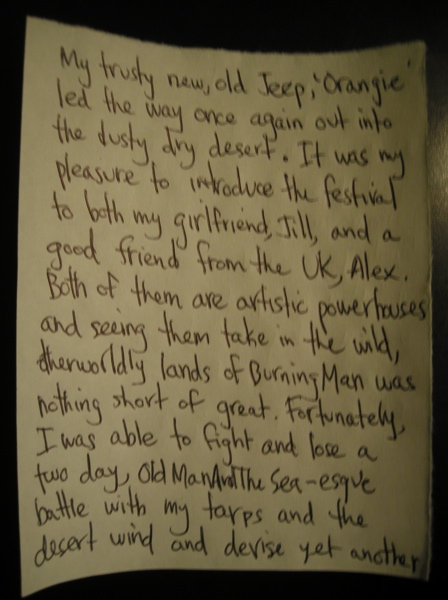 My trusty new, old Jeep, 'Orangie'
led the way once again out into
the dusty, dry desert. It was my
pleasure to introduce the festival
to both my girlfriend, Jill, and a
good friend from the UK, Alex.
Both of them are artistic powerhouses
and seeing them take in the wild,
otherworldly lands of Burning Man was
nothing short of great. Fortunately,
I was able to fight and lose a
two day, Old Man And The Sea-esque
battle with my tarps and the
desert wind and devise yet another